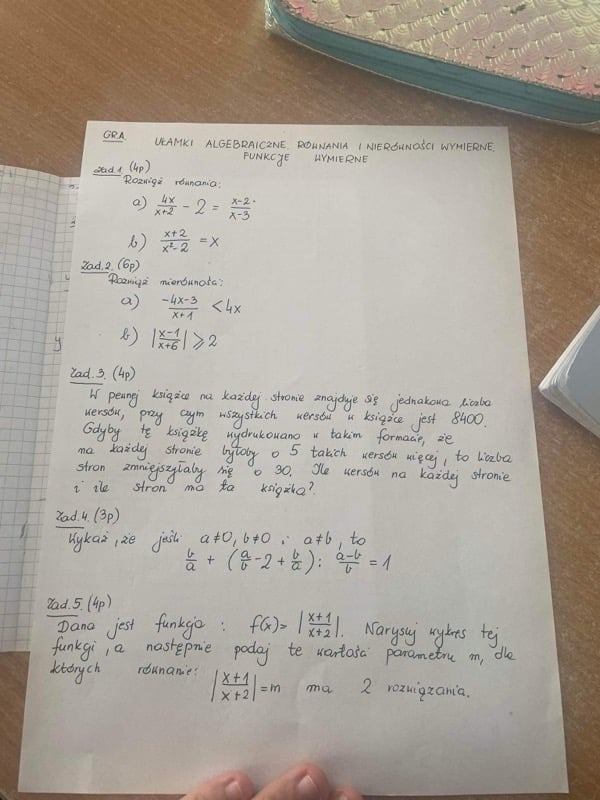 GR.A.
UŁAMKI ALGEBRAICZNE. RÓWNANIA I NIERÓWNOŚCI WYMIERNE.
FUNKCJE WYMIERNE
Zad.1. (4p)
Rozwiąż równania:
a) 4x/(x+2) - 2 = (x-2)/(x-3)
b) (x+2)/(x²-2) = x
Zad.2. (6p)
Rozwiąż nierówności:
a) (-4x-3)/(x+1) < 4x
b) |(x-1)/(x+6)| ⩾ 2
Zad.3. (4p)
W pewnej książce na każdej stronie znajduje się jednakowa liczba
wersów, przy czym wszystkich wersów w książce jest 8400.
Gdyby tę książkę wydrukowano w takim formacie, że
na każdej stronie byłoby o 5 takich wersów więcej, to liczba
stron zmniejszyłaby się o 30. Ile wersów na każdej stronie
i ile stron ma ta książka?
Zad.4. (3p)
Wykaż, że jeśli a≠0, b≠0 i a≠b, to
b/a + (a/b - 2 + b/a) : (a-b)/b = 1
Zad.5. (4p)
Dana jest funkcja : f(x) = |(x+1)/(x+2)|. Narysuj wykres tej
funkcji, a następnie podaj te wartości parametru m, dla
których równanie:
|(x+1)/(x+2)| = m ma 2 rozwiązania.